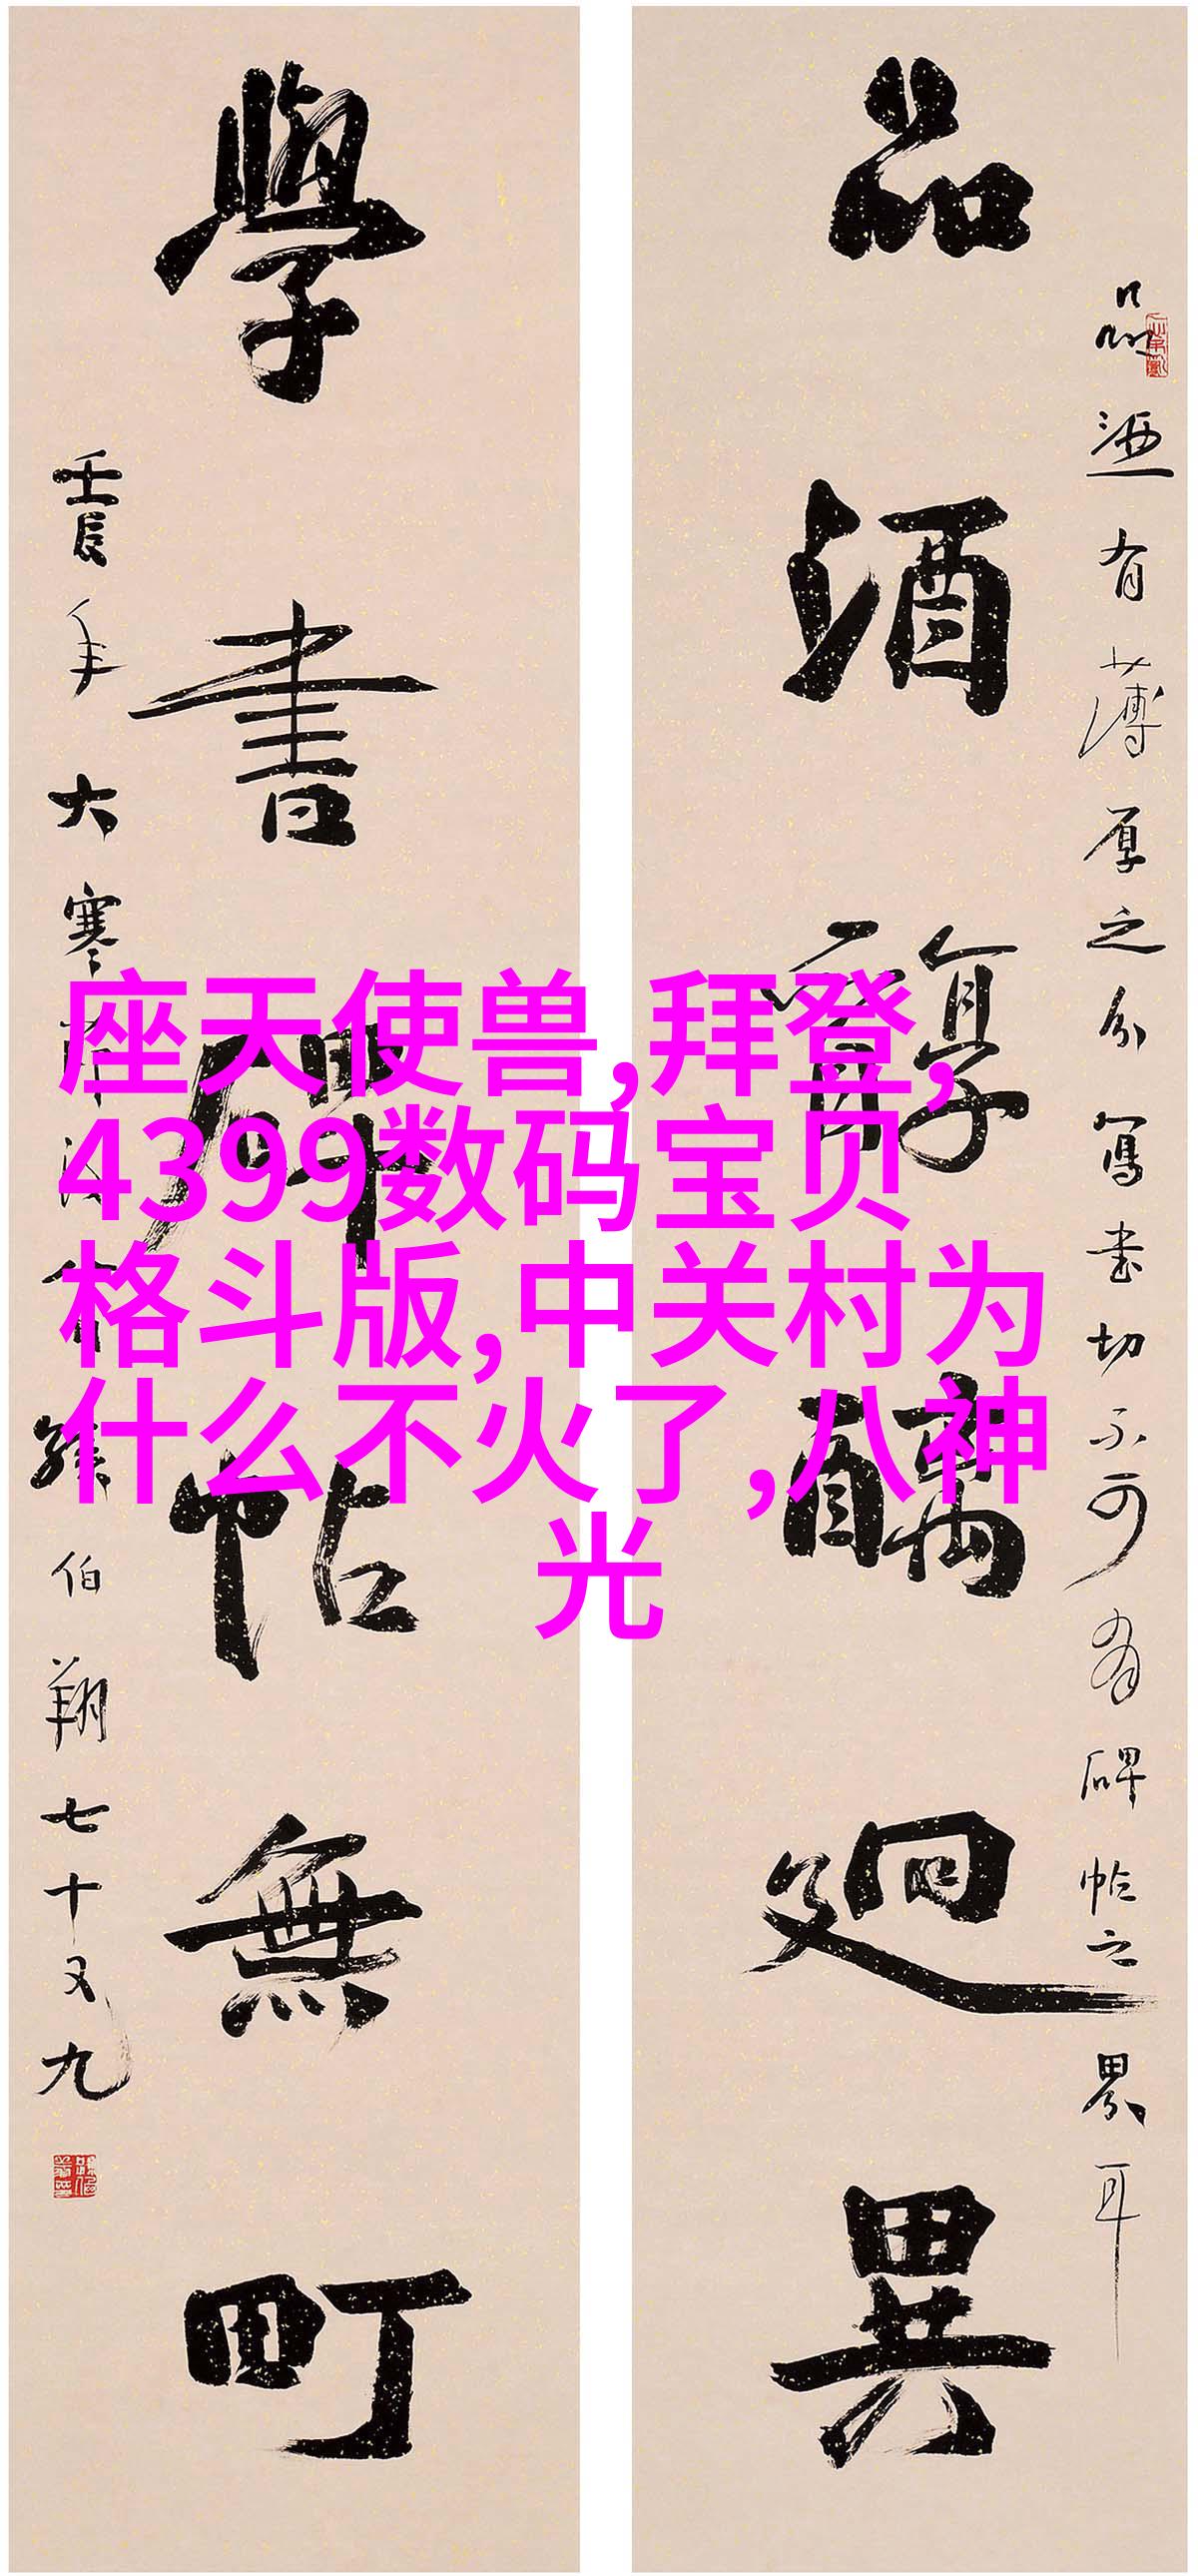 品酒醇醨廻異
品酒有薄厚之分寫書切不可有碑帖之界耳
學書碑帖無町
壬辰年大寒
孫伯翔七十又九
座天使兽,拜登,
4399数码宝贝
格斗版,中关村为
什么不火了,八神
光